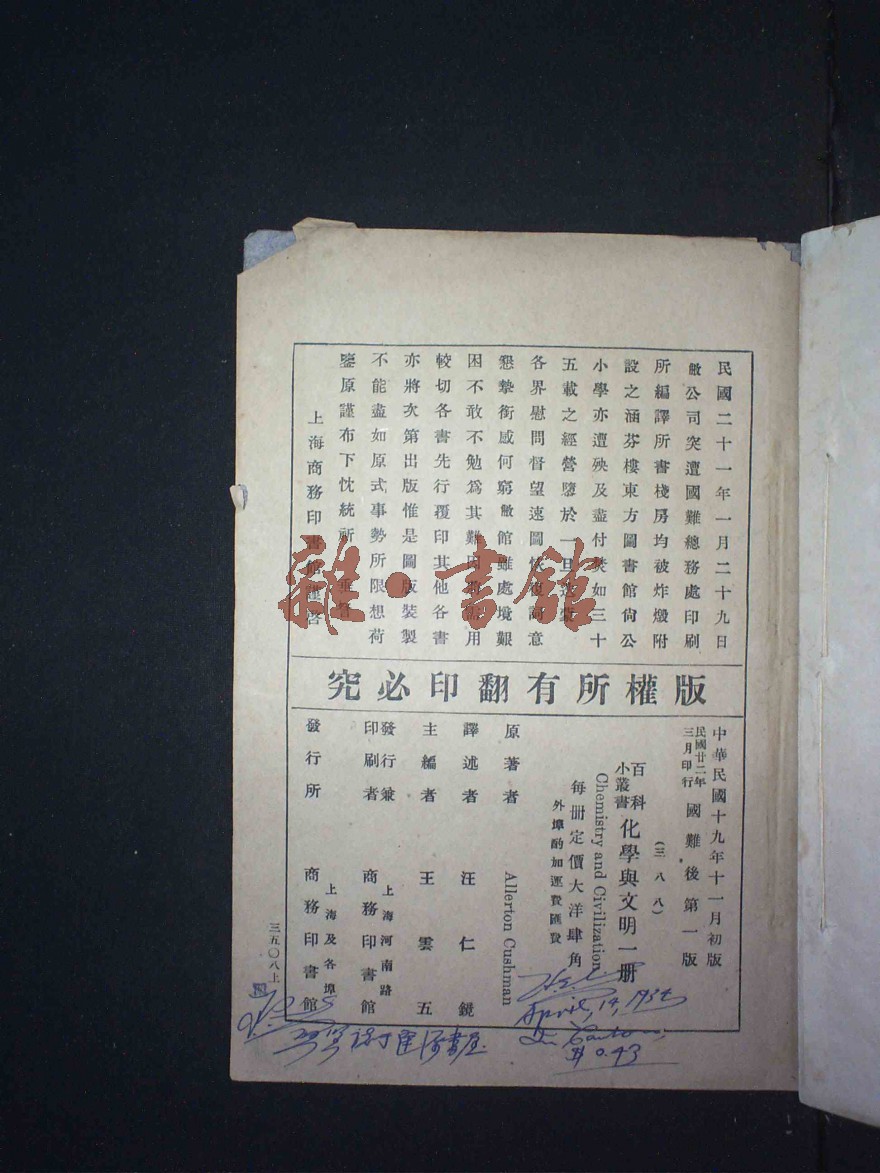 民國二十一年一月二十九日
敝公司突遭國難總務處印刷
所編譯所書棧房均被炸燬附
設之涵芬樓東方圖書館尙公
小學亦遭殃及盡付焚如三十
五載之經營墮於一旦迭蒙
各界慰問督望速圖恢復詞意
懇摯銜感何窮敝館雖處境艱
困不敢不勉爲其難因將需用
較切各書先行覆印其他各書
亦將次第出版惟是圖版裝製
不能盡如原式事勢所限想荷
鑒原謹布下忱統祈 垂詧
上海商務印書館謹啓
版權所有翻印必究
中華民國十九年十一月初版
民國廿二年三月印行 國難後第一版
(三八八)
百科小叢書 化學與文明一册
Chemistry and Civilization
每册定價大洋肆角
外埠酌加運費匯費
原著者 Allerton Cushman
譯述者 汪仁鏡
主編者 王雲五
發行兼印刷者 上海河南路 商務印書館
發行所 上海及各埠 商務印書館
三五〇八上
雜·書館
April, 14, 1934
$0.43